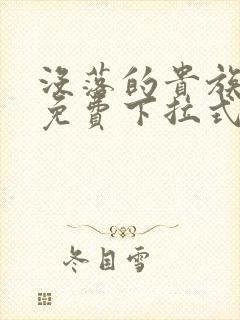 没落的贵族
免費下拉式
冬目雪